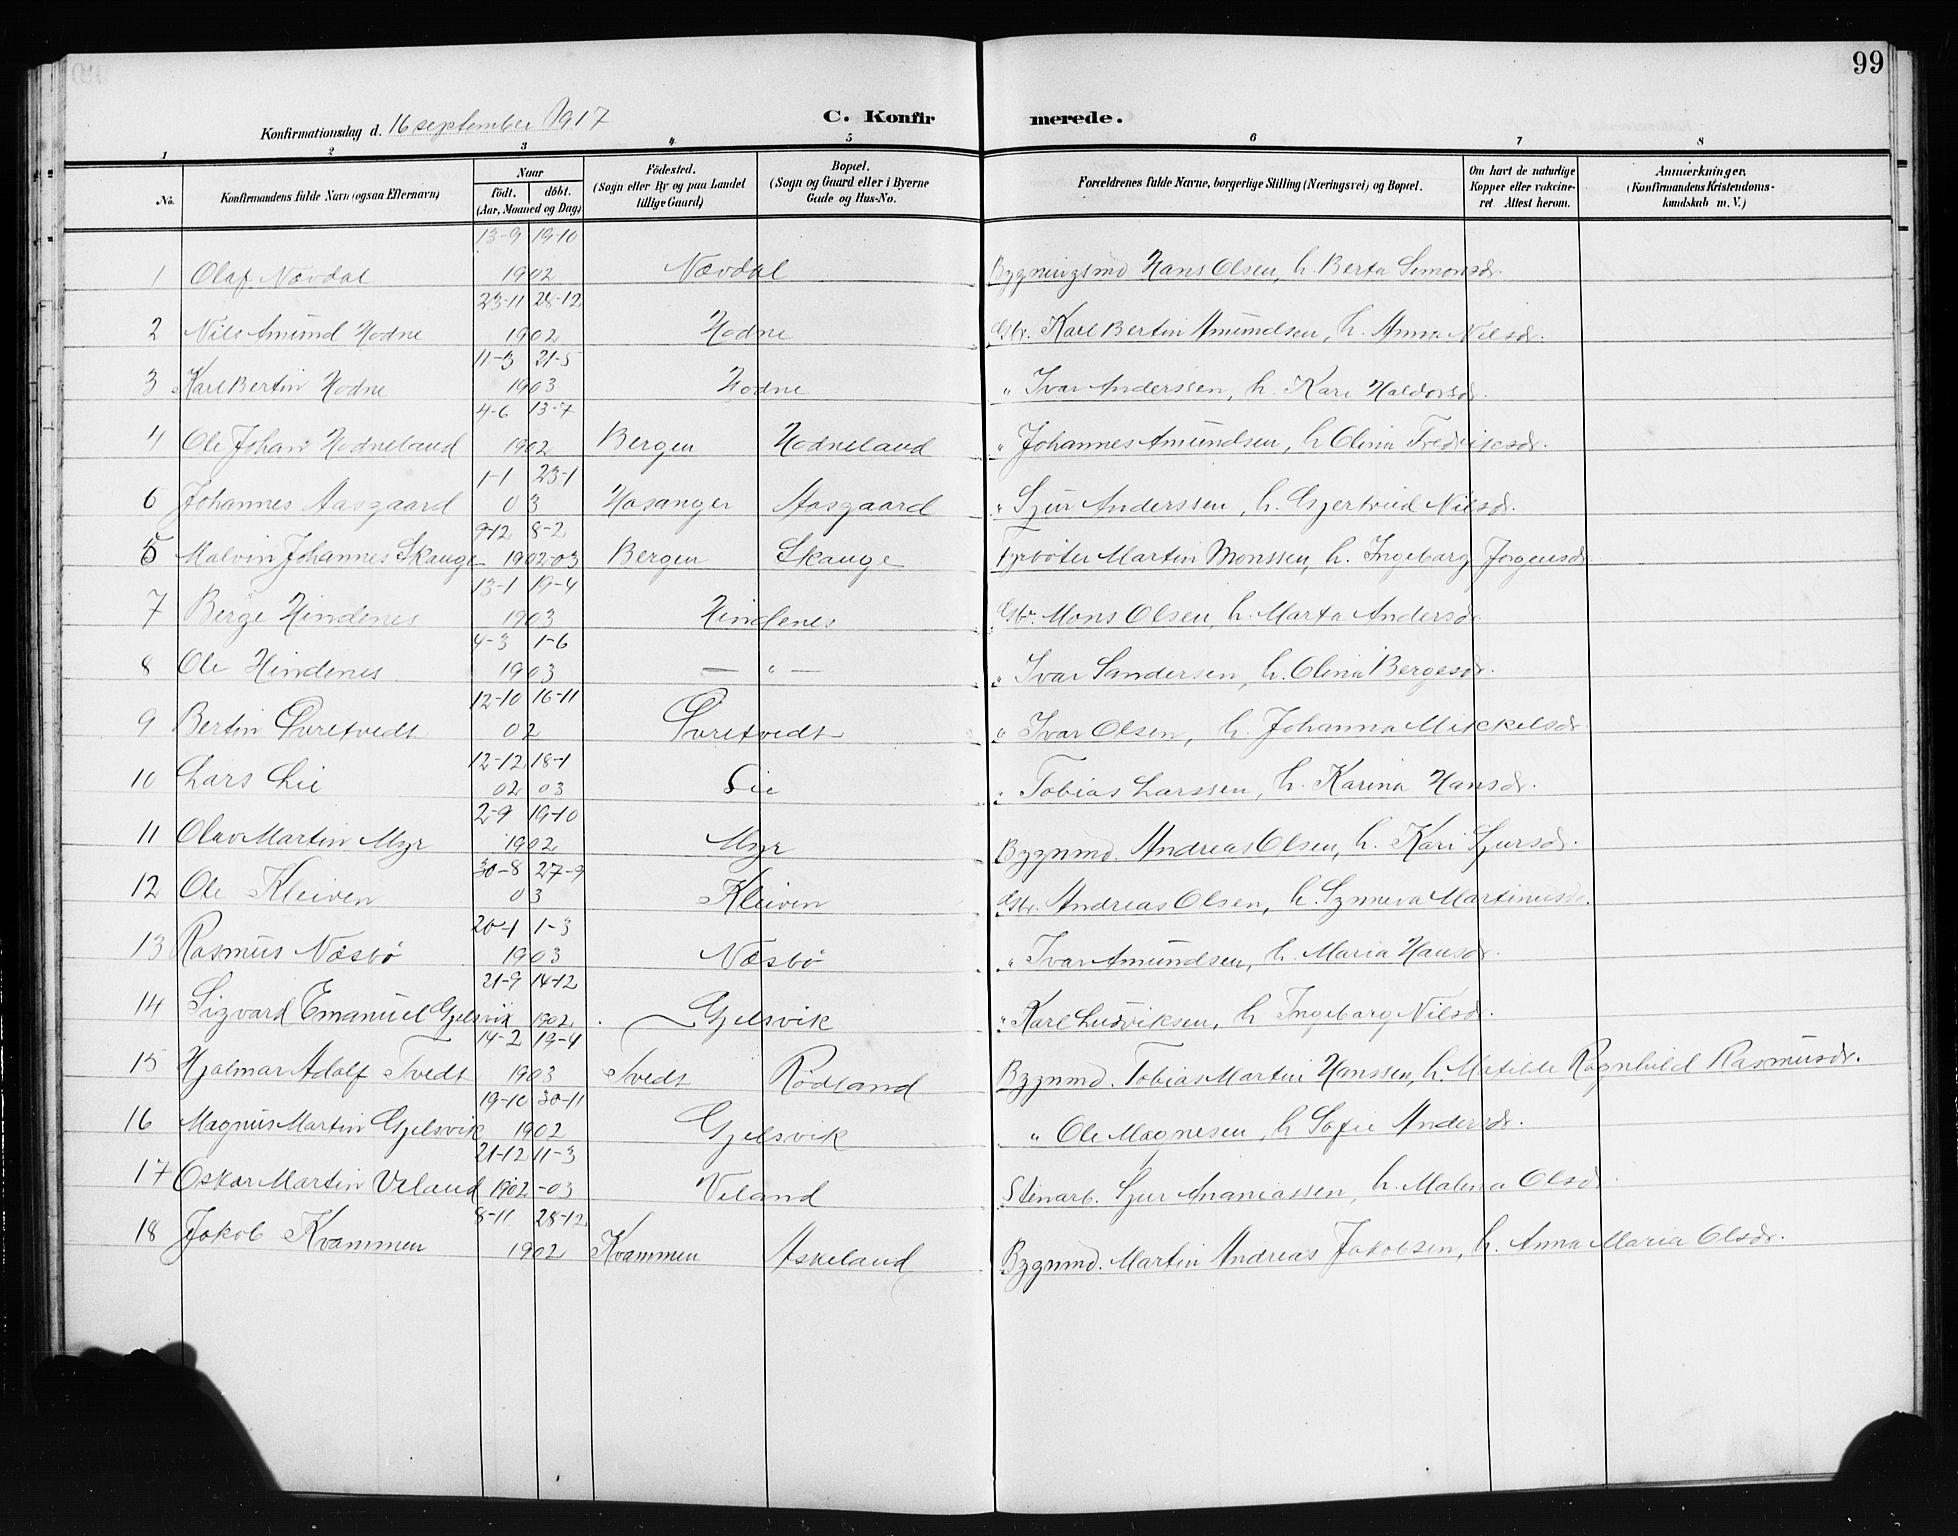 99
Konfirmationsdag d. 16 september 1917 C. Konfirmerede.
1 2 3 4 5 6 7 8
No. Konfirmandens fulde Navn (ogsaa Efternavn) Naar födt. döbt. (Aar, Maaned og Dag) Födested. (Sogn eller By og paa Landet tillige Gaard) Bopæl. (Sogn og Gaard eller i Byerne Gade og Hus-No. Forældrenes fulde Navne, borgerlige Stilling (Næringsvei) og Bopæl. Om havt de naturlige Kopper eller vakcineret. Attest herom. Anmærkninger, (Konfirmandens Kristendomskundskab m. V.)
13-9 19-10
1 Olaf Nævdal 1902 Nævdal Bygningsmd Hans Olsen, h. Berta Simonsdr.
23-11 28-12
2 Nils Amund Hodne 1902 Hodne gbr. Karl Bertin Amundsen, h. Anna Nilsdr.
11-3 21-5
3 Karl Bertin Hodne 1903 Hodne " Ivar Anderssen, h. Kari Haldorsdr.
4-6 13-7
4 Ole Johan Hodneland 1902 Bergen Hodneland " Johannes Amundsen, h Olina Fredriksdr.
1-1 23-1
6 Johannes Aasgaard 03 Hosanger Aasgaard " Sjur Anderssen, h. Gjertrud Nilsdr.
9-12 8-2
5 Malvin Johannes Skauge 1902-03 Bergen Skauge Fyrbøter Martin Monssen, h. Ingeborg Jørgensdr
13-1 19-4
7 Berge Hindenes 1903 Hindenes Gbr. Mons Olsen, h. Marta Andersdr
4-3 1-6
8 Ole Hindenes 1903 — " — " Ivar Sandersen, h. Olina Bergesdr.
12-10 16-11
9 Bertin Øvretvedt 02 Øvretvedt " Ivar Olsen, h. Johanna Mikkelsdr
12-12 18-1
10 Lars Lie 02 03 Lie " Tobias Larssen, h. Karina Hansdr.
2-9 19-10
11 Olav Martin Myr 1902 Myr Bygnmd. Andreas Olsen, h. Kari Sjursdr.
30-8 27-9
12 Ole Kleiven 03 Kleiven gbr. Andreas Olsen, h. Synneva Martinusdr.
20-1 1-3
13 Rasmus Næsbø 1903 Næsbø " Ivar Amundsen, h. Maria Hansdr.
21-9 14-12
14 Sigvard Emanuel Gjelsvik 1902 Gjelsvik " Karl Ludviksen, h Ingeborg Nilsdr.
14-2 19-4
15 Hjalmar Adolf Tvedt 1903 Tvedt Rödland Bygnmd. Tobias Martin Hanssen, h. Matilde Ragnhild Rasmusdr.
19-10 30-11
16 Magnus Martin Gjelsvik 1902 Gjelsvik " Ole Magnesen, h Sofie Andersdr.
21-12 11-3
17 Oskar Martin Veland 1902-03 Veland Stenarb. Sjur Ananiassen, h. Malena Olsdr
8-11 28-12
18 Jakob Kvammen 1902 Kvammen Askeland Bygnmd. Martin Andreas Jakobsen, h. Anna Maria Olsdr.